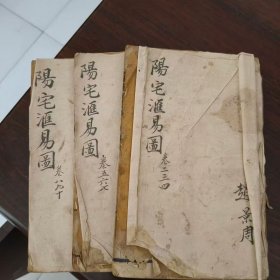 陽宅滙易圖
卷二三四
趙景周
陽宅滙易圖
卷五六七
陽宅滙易圖
卷八九十